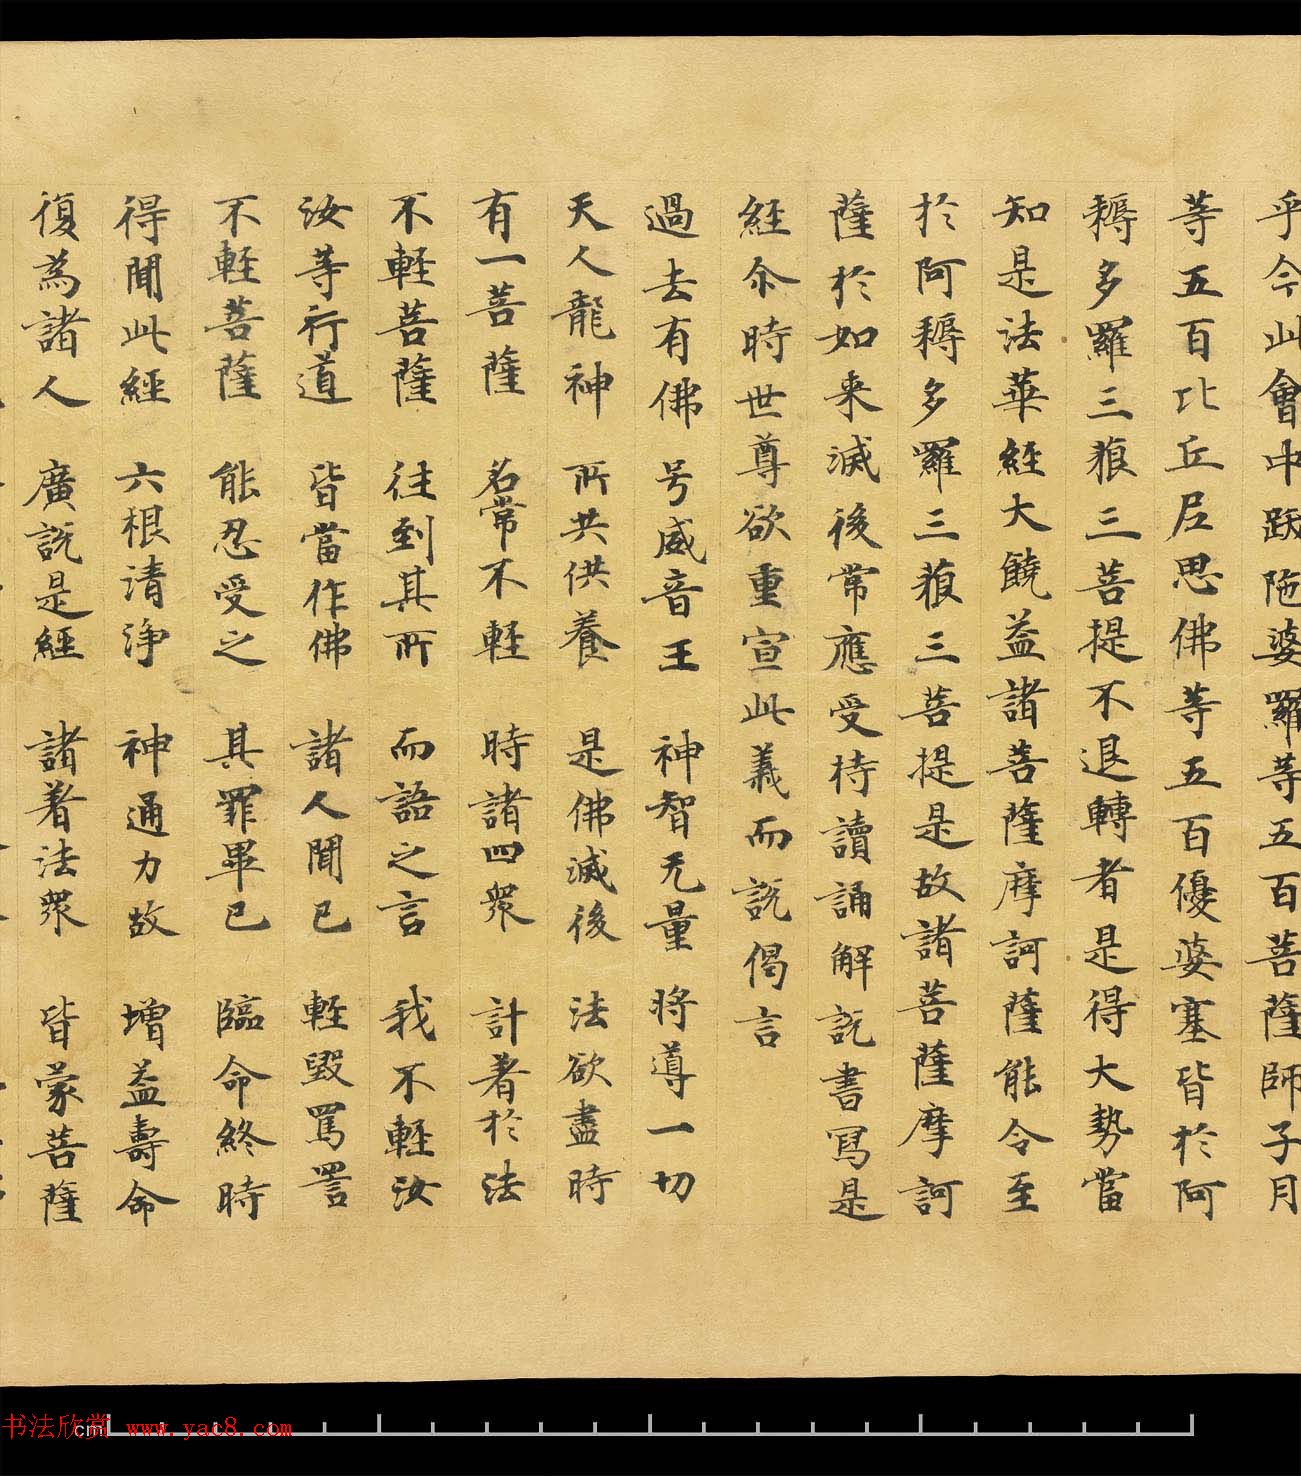 乎今此會中跋陁婆羅等五百菩薩師子月
等五百比丘尼思佛等五百優婆塞皆於阿
耨多羅三藐三菩提不退轉者是得大勢當
知是法華經大饒益諸菩薩摩訶薩能令至
於阿耨多羅三藐三菩提是故諸菩薩摩訶
薩於如来滅後常應受持讀誦解説書寫是
經尒時世尊欲重宣此義而説偈言
過去有佛 号威音王 神智无量 将導一切
天人龍神 所共供養 是佛滅後 法欲盡時
有一菩薩 名常不輕 時諸四衆 計著於法
不輕菩薩 往到其所 而語之言 我不輕汝
汝等行道 皆當作佛 諸人聞已 輕毀罵詈
不輕菩薩 能忍受之 其罪畢已 臨命終時
得聞此經 六根清淨 神通力故 增益壽命
復為諸人 廣説是經 諸著法衆 皆蒙菩薩
书法欣赏 www.yac8.com
cm